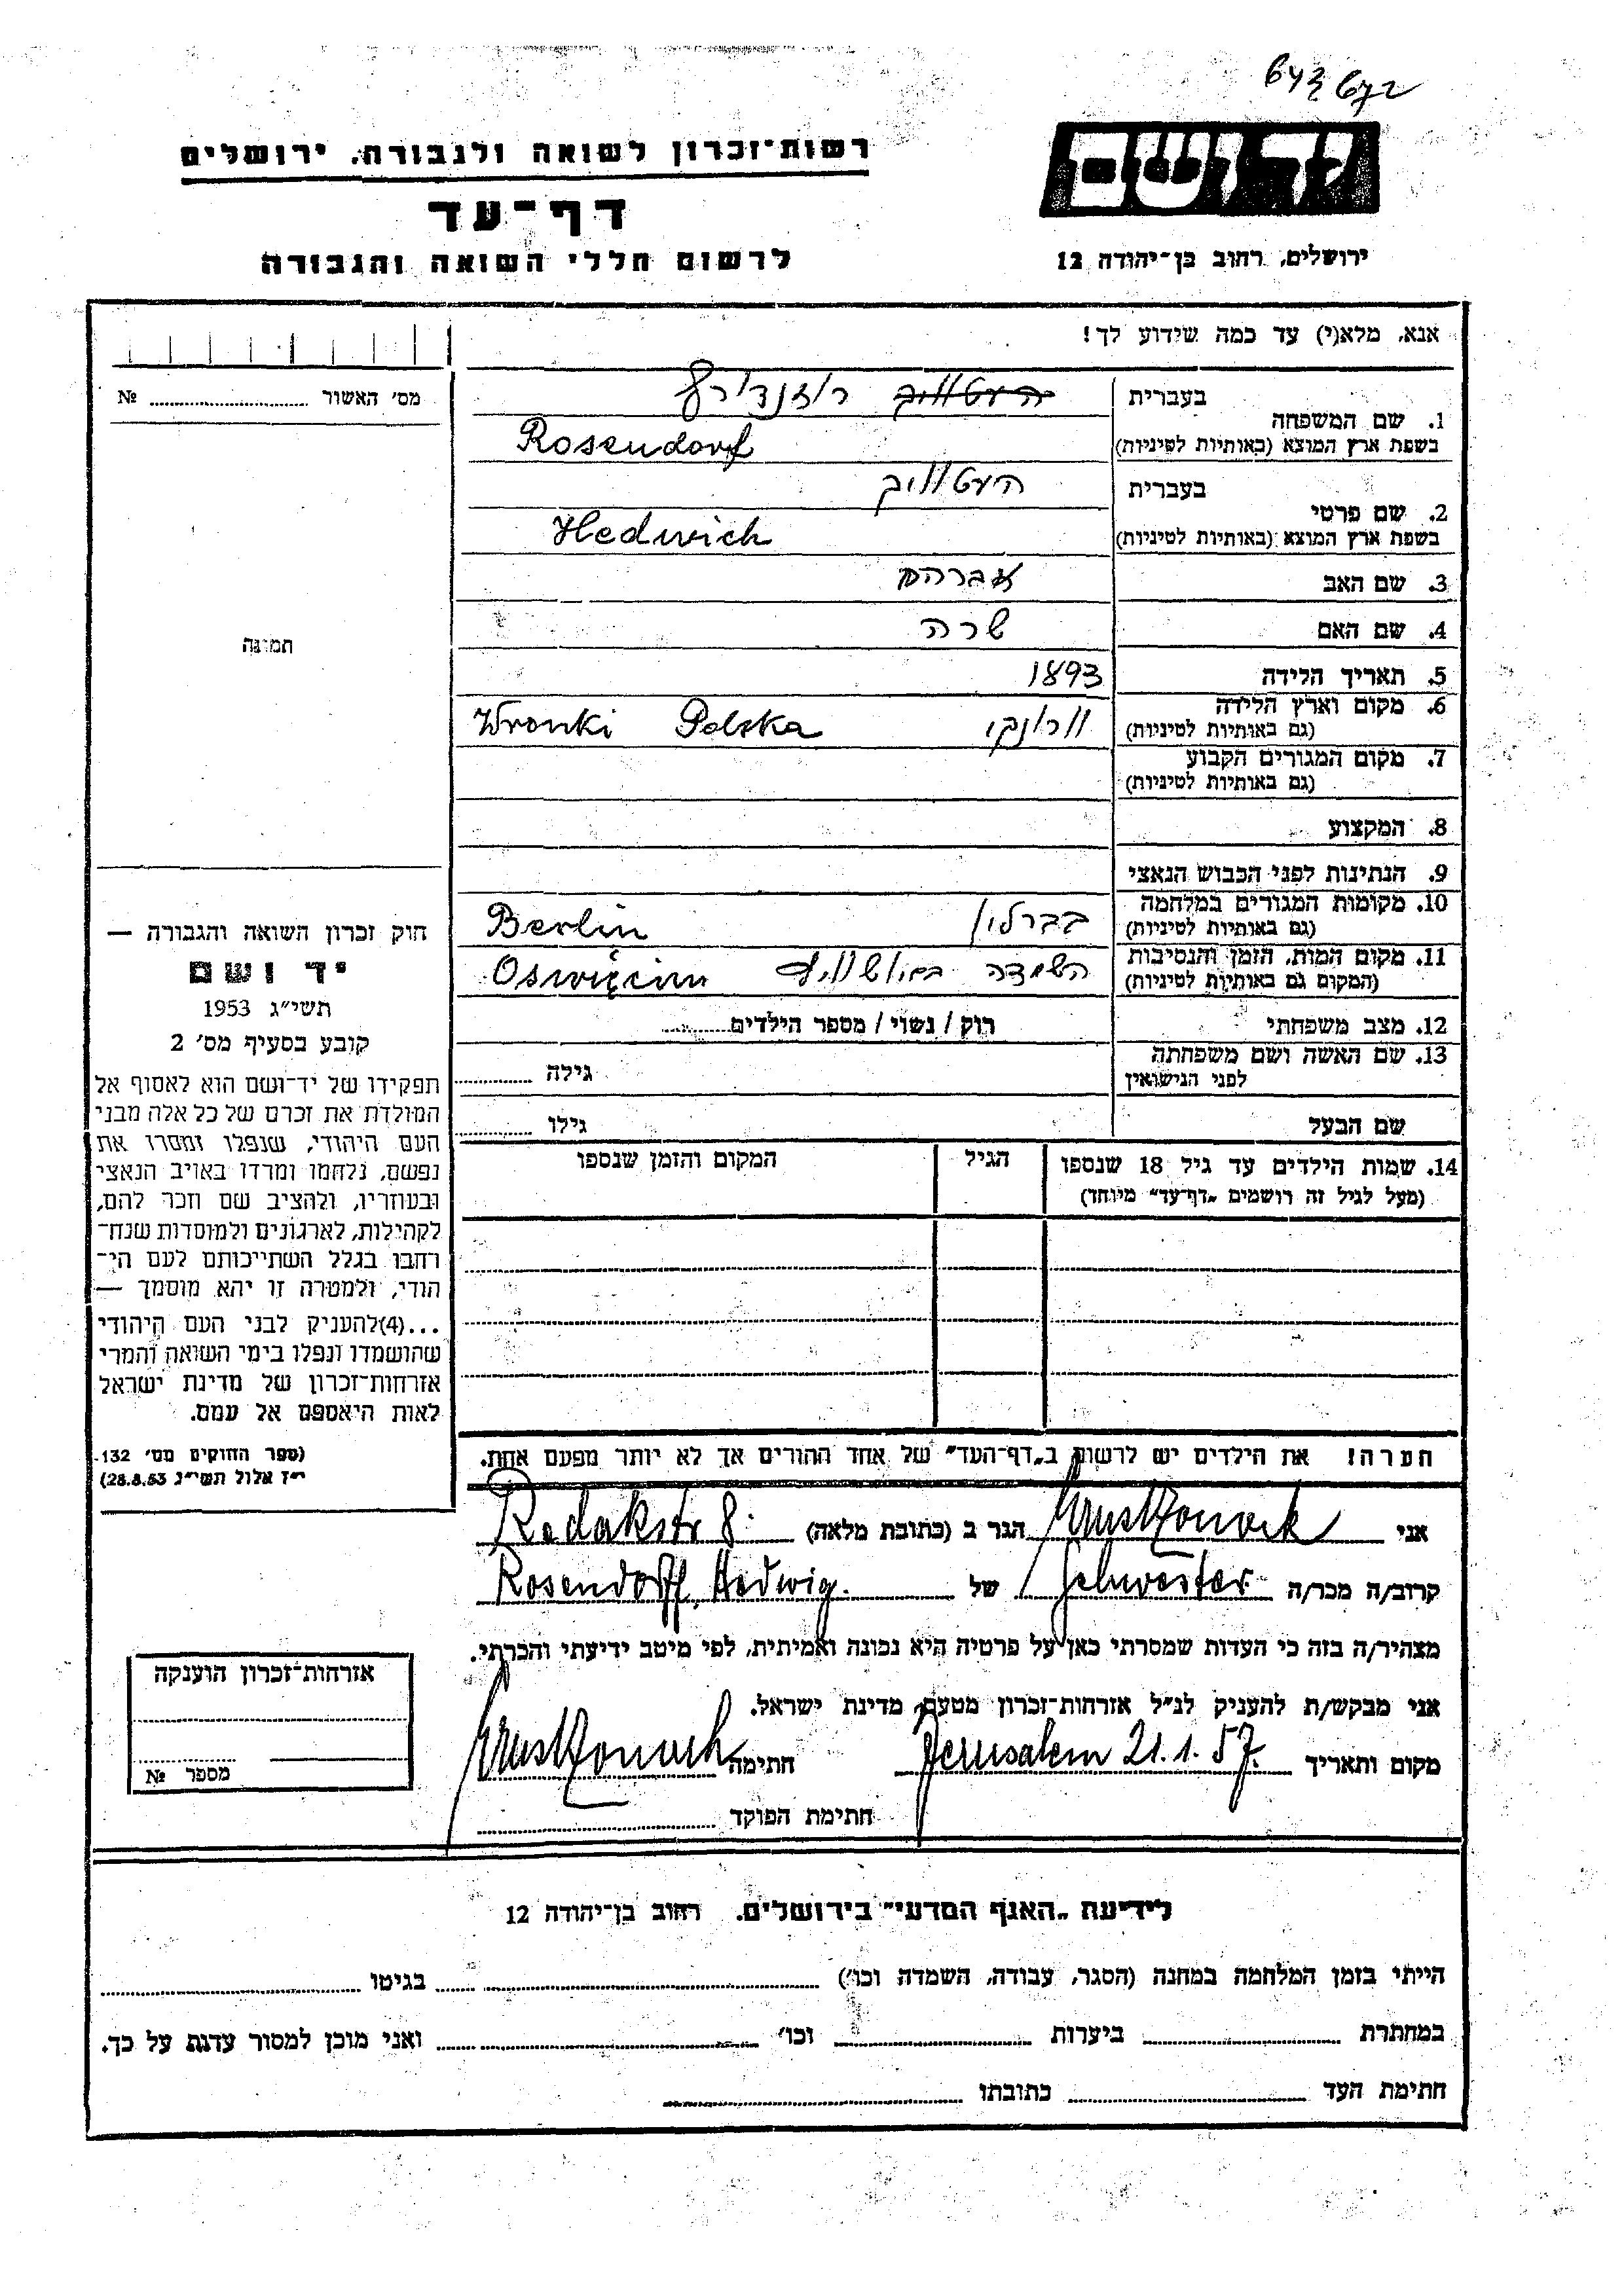 643 672
רשות-זכרון לשואה ולגבורה, ירושלים
יד ושם
דף-עד
לרשום חללי השואה והגבורה
ירושלים, רחוב בן-יהודה 12
אנא, מלא(י) עד כמה שידוע לך!
מס' האשור № 
1. שם המשפחה
בעברית
רוזנדורף
בשפת ארץ המוצא (באותיות לטיניות)
Rosendorf
2. שם פרטי
בעברית
העטוויך
בשפת ארץ המוצא (באותיות לטיניות)
Hedwich
3. שם האב אברהם
4. שם האם שרה
תמונה
5. תאריך הלידה 1893
6. מקום וארץ הלידה
(גם באותיות לטיניות)
וורונקי Wronki Polska
7. מקום המגורים הקבוע
(גם באותיות לטיניות)
8. המקצוע
9. הנתינות לפני הכבוש הנאצי
10. מקומות המגורים במלחמה
(גם באותיות לטיניות)
בברלין Berlin
11. מקום המות, הזמן והנסיבות
(המקום גם באותיות לטיניות)
השמדה Oswięcim
12. מצב משפחתי רוק / נשוי / מספר הילדים
13. שם האשה ושם משפחתה
לפני הנישואין
גילה
שם הבעל גילו
14. שמות הילדים עד גיל 18 שנספו
(מעל לגיל זה רושמים „דף-עד" מיוחד)
הגיל
המקום והזמן שנספו
הערה! את הילדים יש לרשום ב„דף-העד" של אחד ההורים אך לא יותר מפעם אחת.
חוק זכרון השואה והגבורה —
יד ושם
תשי"ג 1953
קובע בסעיף מס' 2
תפקידו של יד-ושם הוא לאסוף אל
המולדת את זכרם של כל אלה מבני
העם היהודי, שנפלו ומסרו את
נפשם, נלחמו ומרדו באויב הנאצי
ובעוזריו, ולהציב שם וזכר להם,
לקהילות, לארגונים ולמוסדות שנח-
רחבו בגלל השתייכותם לעם הי-
הודי, ולמטרה זו יהא מוסמך —
...(4)להעניק לבני העם היהודי
שהושמדו ונפלו בימי השואה והמרי
אזרחות-זכרון של מדינת ישראל
לאות היאספם אל עמם.
(ספר החוקים מס' 132.
י"ז אלול תשי"ג 28.8.53)
אני הגר ב (כתובת מלאה) Radakstr 8.
קרוב/ה מכר/ה Schwester של Rosendorff, Hedwig.
מצהיר/ה בזה כי העדות שמסרתי כאן על פרטיה היא נכונה ואמיתית, לפי מיטב ידיעתי והכרתי.
אני מבקש/ת להעניק לנ"ל אזרחות-זכרון מטעם מדינת ישראל.
מקום ותאריך Jerusalem 21.1.57. חתימה
חתימת הפוקד
אזרחות-זכרון הוענקה
מספר №
לידיעת „האגף המדעי" בירושלים, רחוב בן-יהודה 12
הייתי בזמן המלחמה במחנה (הסגר, עבודה, השמדה וכו') בגיטו
במחתרת ביערות וכו' ואני מוכן למסור עדות על כך.
חתימת העד כתובתו